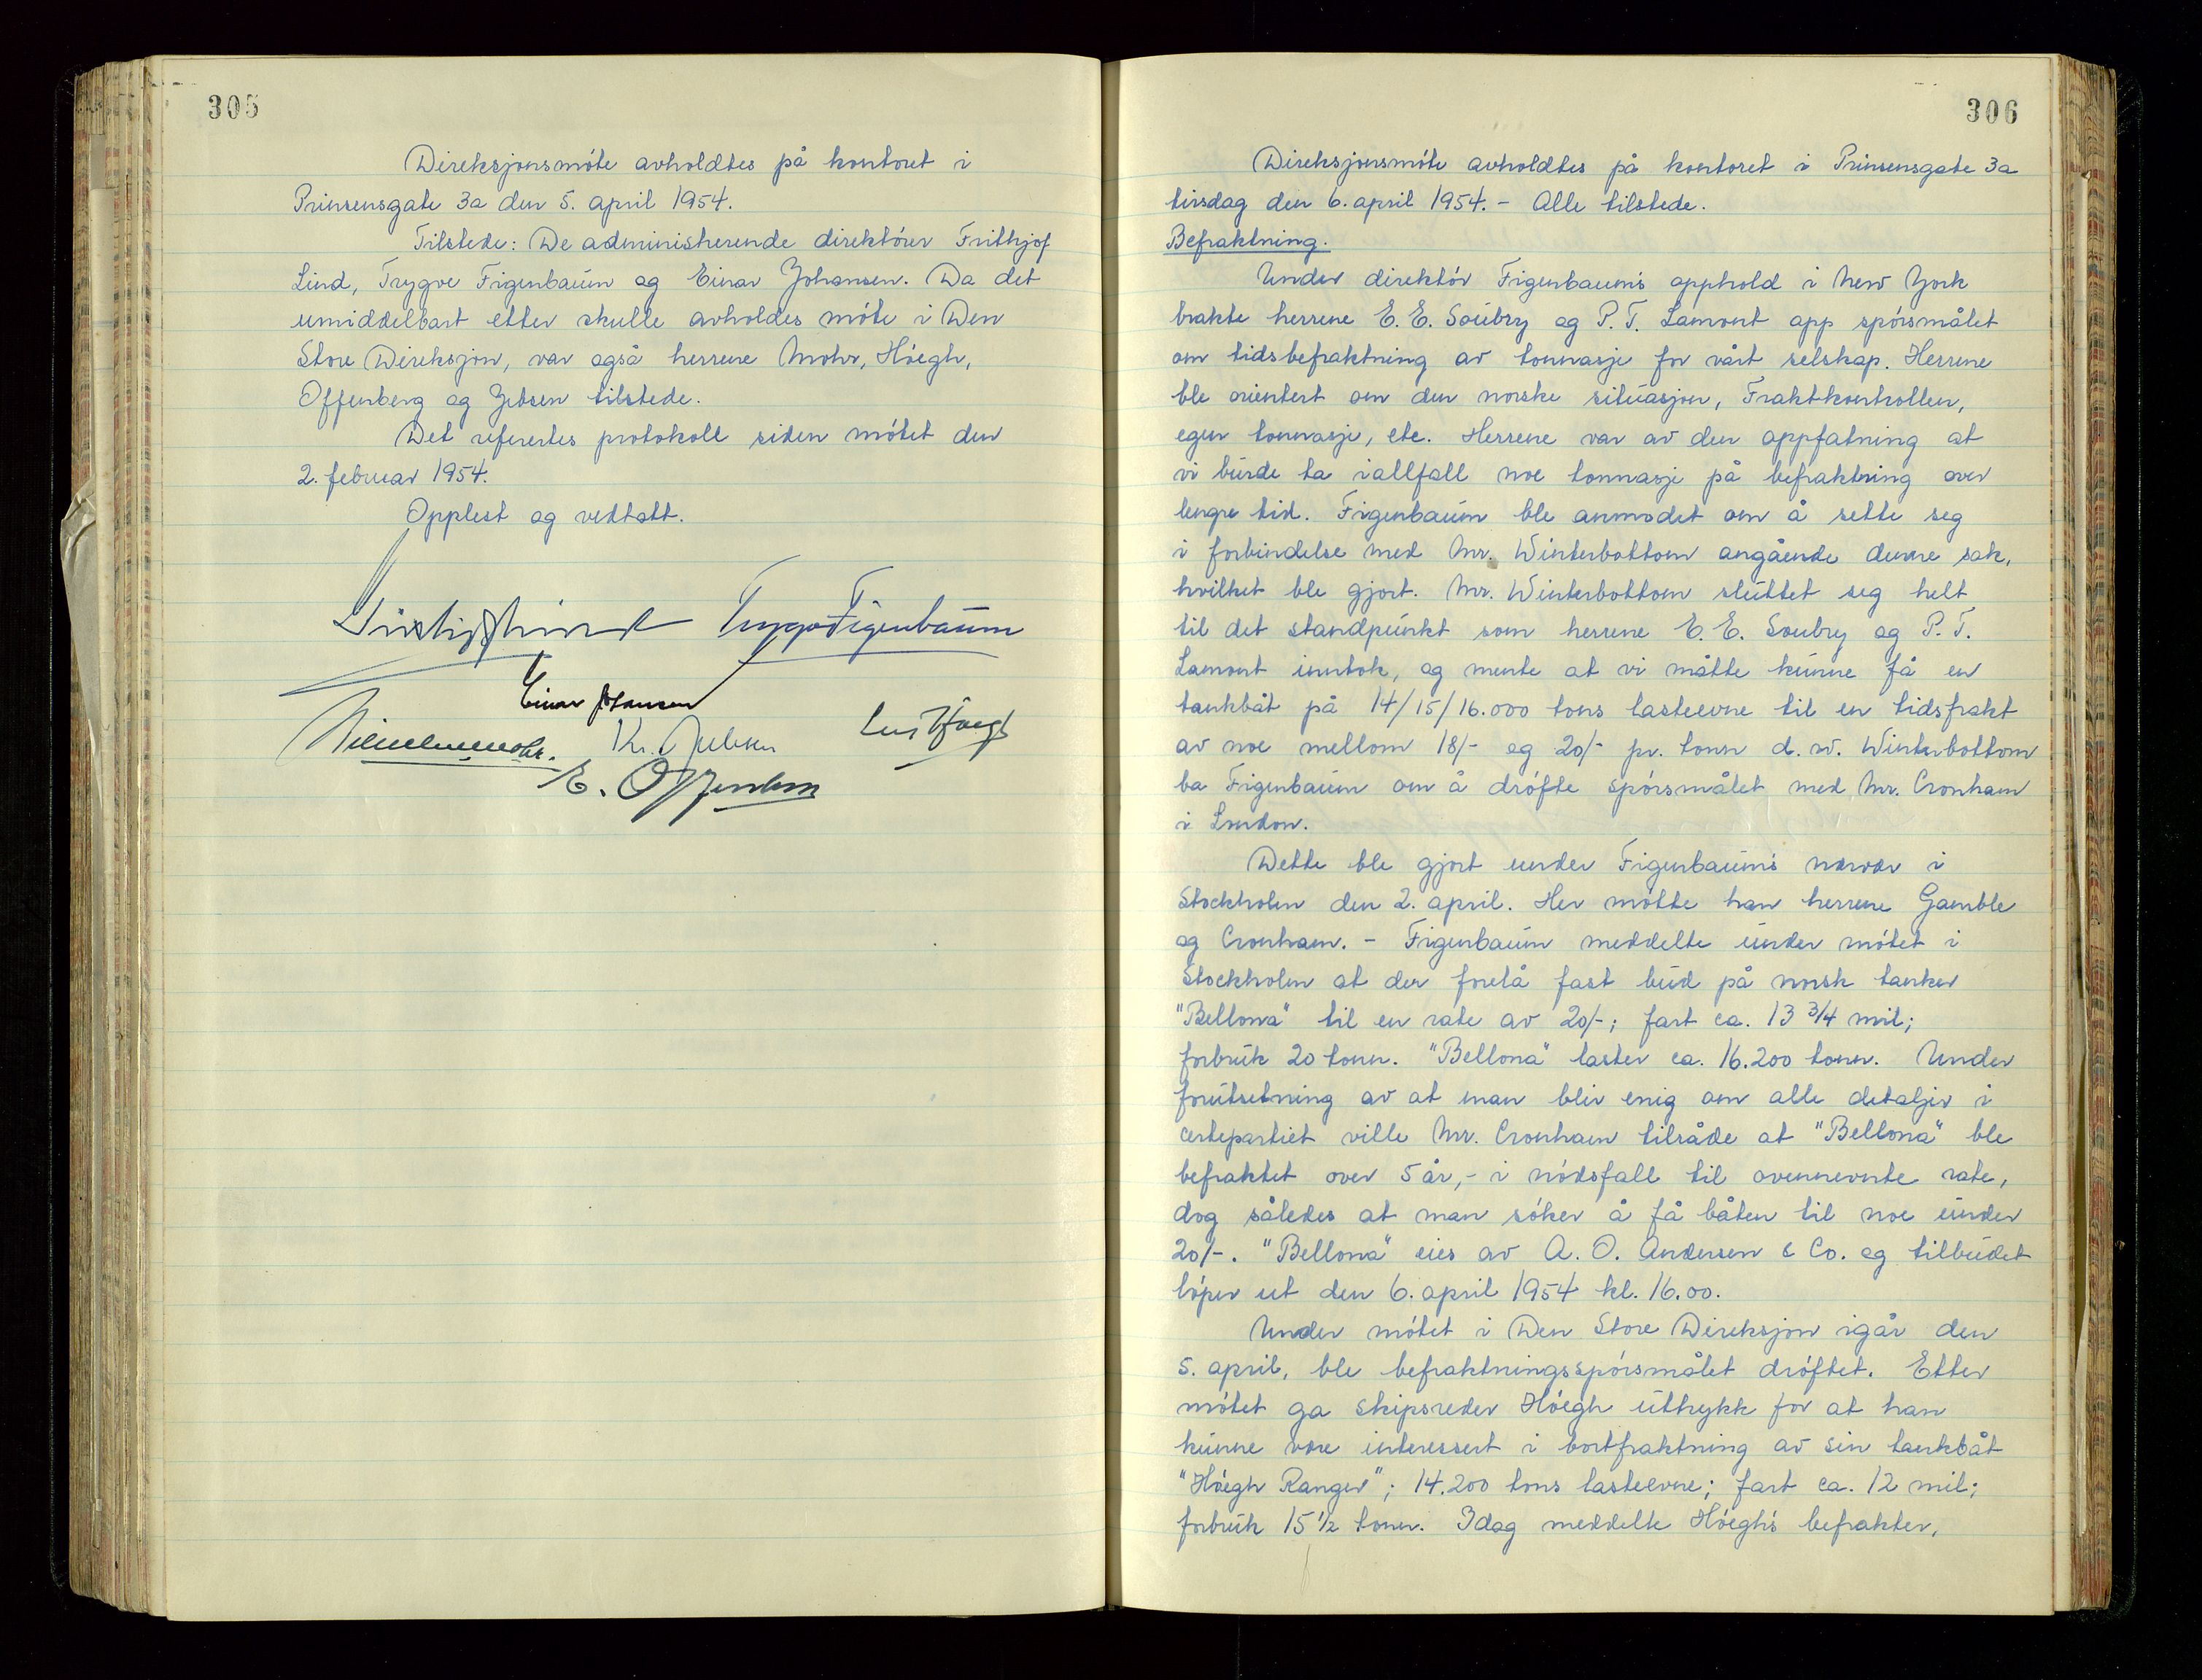 305
Direksjonsmöte avholdtes på kontoret i
Prinsensgate 3a den 5. april 1954.
Tilstede: De administrerende direktörer Frithjof
Lind, Trygve Figenbaum og Einar Johansen. Da det
umiddelbart etter skulle avholdes möte i Den
Store Direksjon, var også herrene Mohr, Höegh,
Offenberg og Jebsen tilstede.
Det referertes protokoll siden mötet den
2. februar 1954.
Opplest og vedtatt.
Trygve Figenbaum
Einar Johansen
Kr. Jebsen
E. Offenberg
306
Direksjonsmöte avholdtes på kontoret i Prinsensgate 3a
tirsdag den 6. april 1954. - Alle tilstede.
Befraktning.
Under direktör Figenbaum's opphold i New York
brakte herrene E. E. Soubry og P. T. Lamont opp spörsmålet
om tidsbefraktning av tonnasje for vårt selskap. Herrene
ble orientert om den norske situasjon, Fraktkontrollen,
egen tonnasje, etc. Herrene var av den oppfatning at
vi burde ta iallfall noe tonnasje på befraktning over
lengre tid. Figenbaum ble anmodet om å sette seg
i forbindelse med Mr. Winterbottom angående denne sak,
hvilket ble gjort. Mr. Winterbottom sluttet seg helt
til det standpunkt som herrene E. E. Soubry og P. T.
Lamont inntok, og mente at vi måtte kunne få en
tankbåt på 14/15/16.000 tons lasteevne til en tidsfrakt
av noe mellom 18/- og 20/- pr. tonn d. w. Winterbottom
ba Figenbaum om å dröfte spörsmålet med Mr. Cronham
i London.
Dette ble gjort under Figenbaum's nærvær i
Stockholm den 2. april. Her mötte han herrene Gamble
og Cronham. - Figenbaum meddelte under mötet i
Stockholm at der forelå fast bud på norsk tanker
"Bellona" til en rate av 20/-; fart ca. 13 3/4 mil;
forbruk 20 tonn. "Bellona" laster ca. 16.200 tonn. Under
forutsetning av at man blir enig om alle detaljer i
certepartiet ville Mr. Cronham tilråde at "Bellona" ble
befraktet over 5 år, - i nödsfall til ovennevnte rate,
dog således at man söker å få båten til noe under
20/-. "Bellona" eies av A. O. Andersen & Co. og tilbudet
löper ut den 6. april 1954 kl. 16.00.
Under mötet i Den Store Direksjon igår den
5. april, ble befraktningsspörsmålet dröftet. Etter
mötet ga skipsreder Höegh uttrykk for at han
kunne være interessert i bortfraktning av sin tankbåt
"Höegh Ranger"; 14.200 tons lasteevne; fart ca. 12 mil;
forbruk 15 1/2 tonn. Idag meddelte Höegh's befrakter,